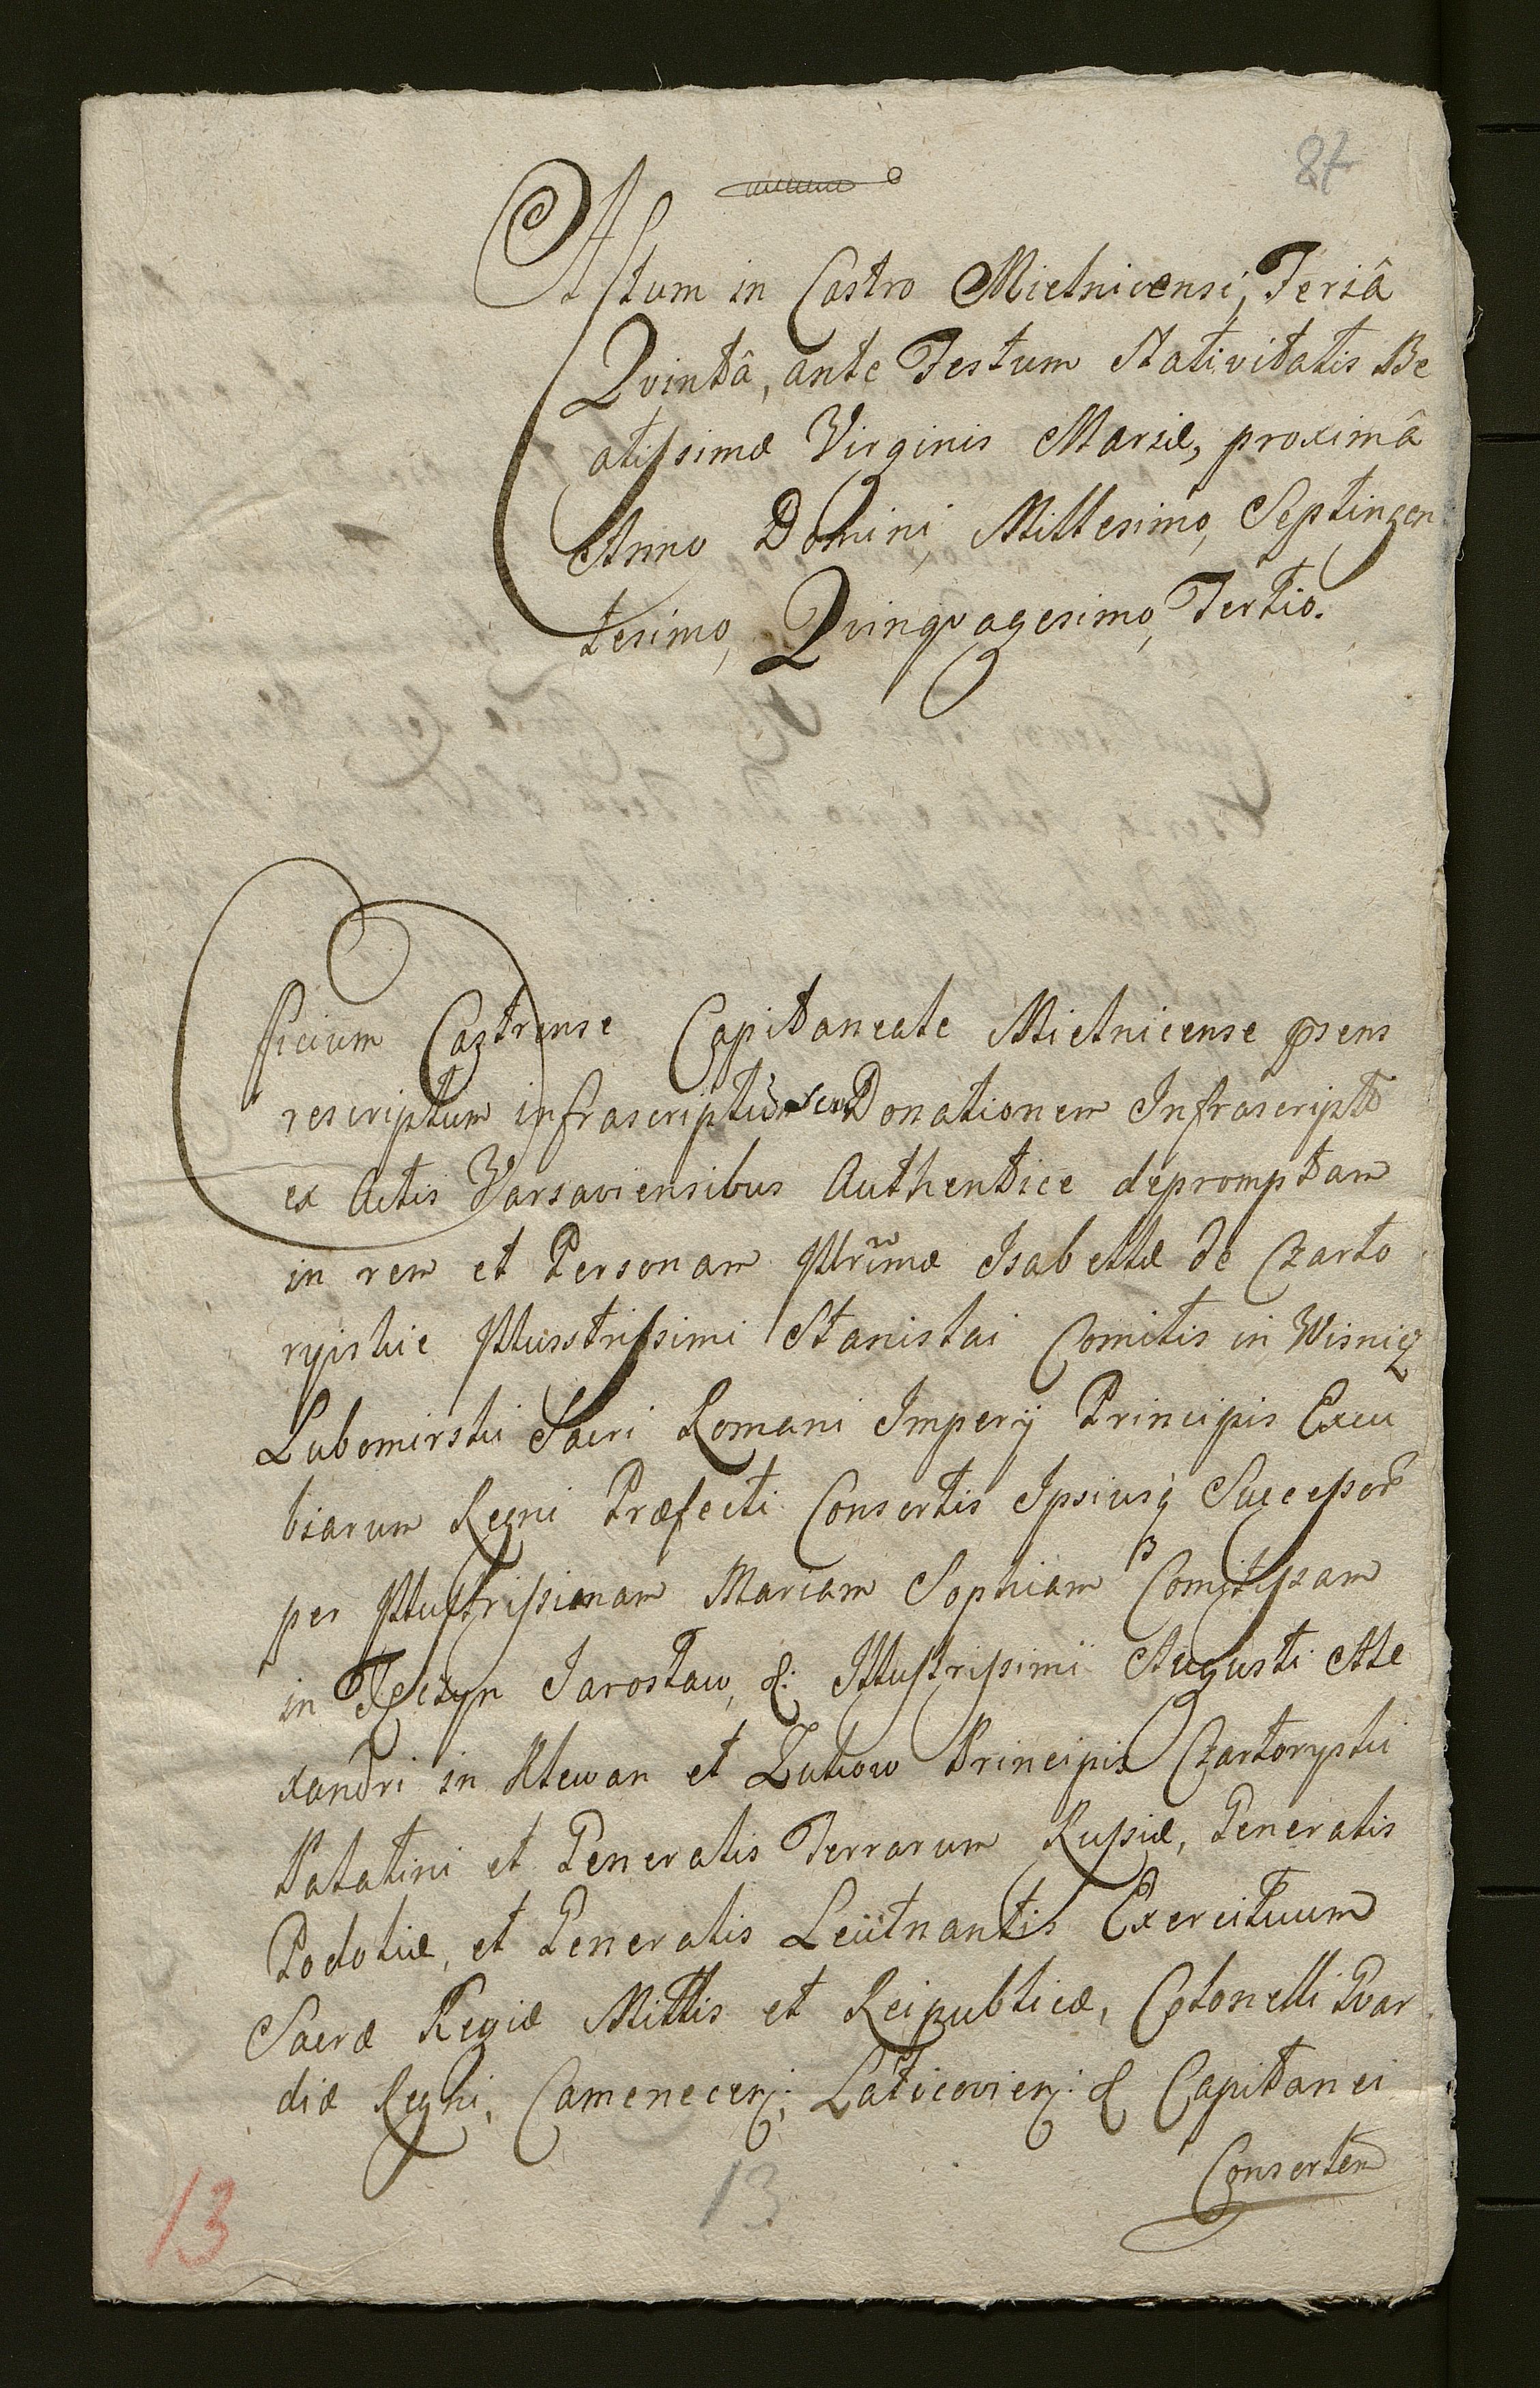 87
Actum in Castro Mielnicensi, Feriâ
Qvintâ, ante Festum Nativitatis Be
atissimæ Virginis Mariæ, proximâ
Anno Domini, Millesimo, Septingen
tesimo, Qvinqvagesimo, Tertio.
Officium Castrense Capitaneale Mielnicense psens
rescriptum infrascriptũ seu Donationem Infrascriptõ
ex Actis Varsaviensibus Authentice depromptam
in rem et Personam Illrĩmæ Isabellæ de Czarto
ryiskie Illusstrissimi Stanislai Comitis in Wisnicz
Lubomirski Sacri Romani Imperij Principis Excu
biarum Regni Præfecti Consortis Ipsiusq̃ Successor̃
per Illustrissimam Mariam Sophiam Comitissam
in Tęczyn Jarosław, &: Illustrissimi Augusti Ale
xandri in Klewan et Zukow Principis Czartoryski
Palatini et Generalis Terrarum Russiæ, Generalis
Podoliæ, et Generalis Leütnantis Exercituum
Sacræ Regiæ Mttis et Reipublicæ, Colonelli Gvar
diæ Regni, Camenecen: Laticovien: & Capitanei
Consortem
13
13